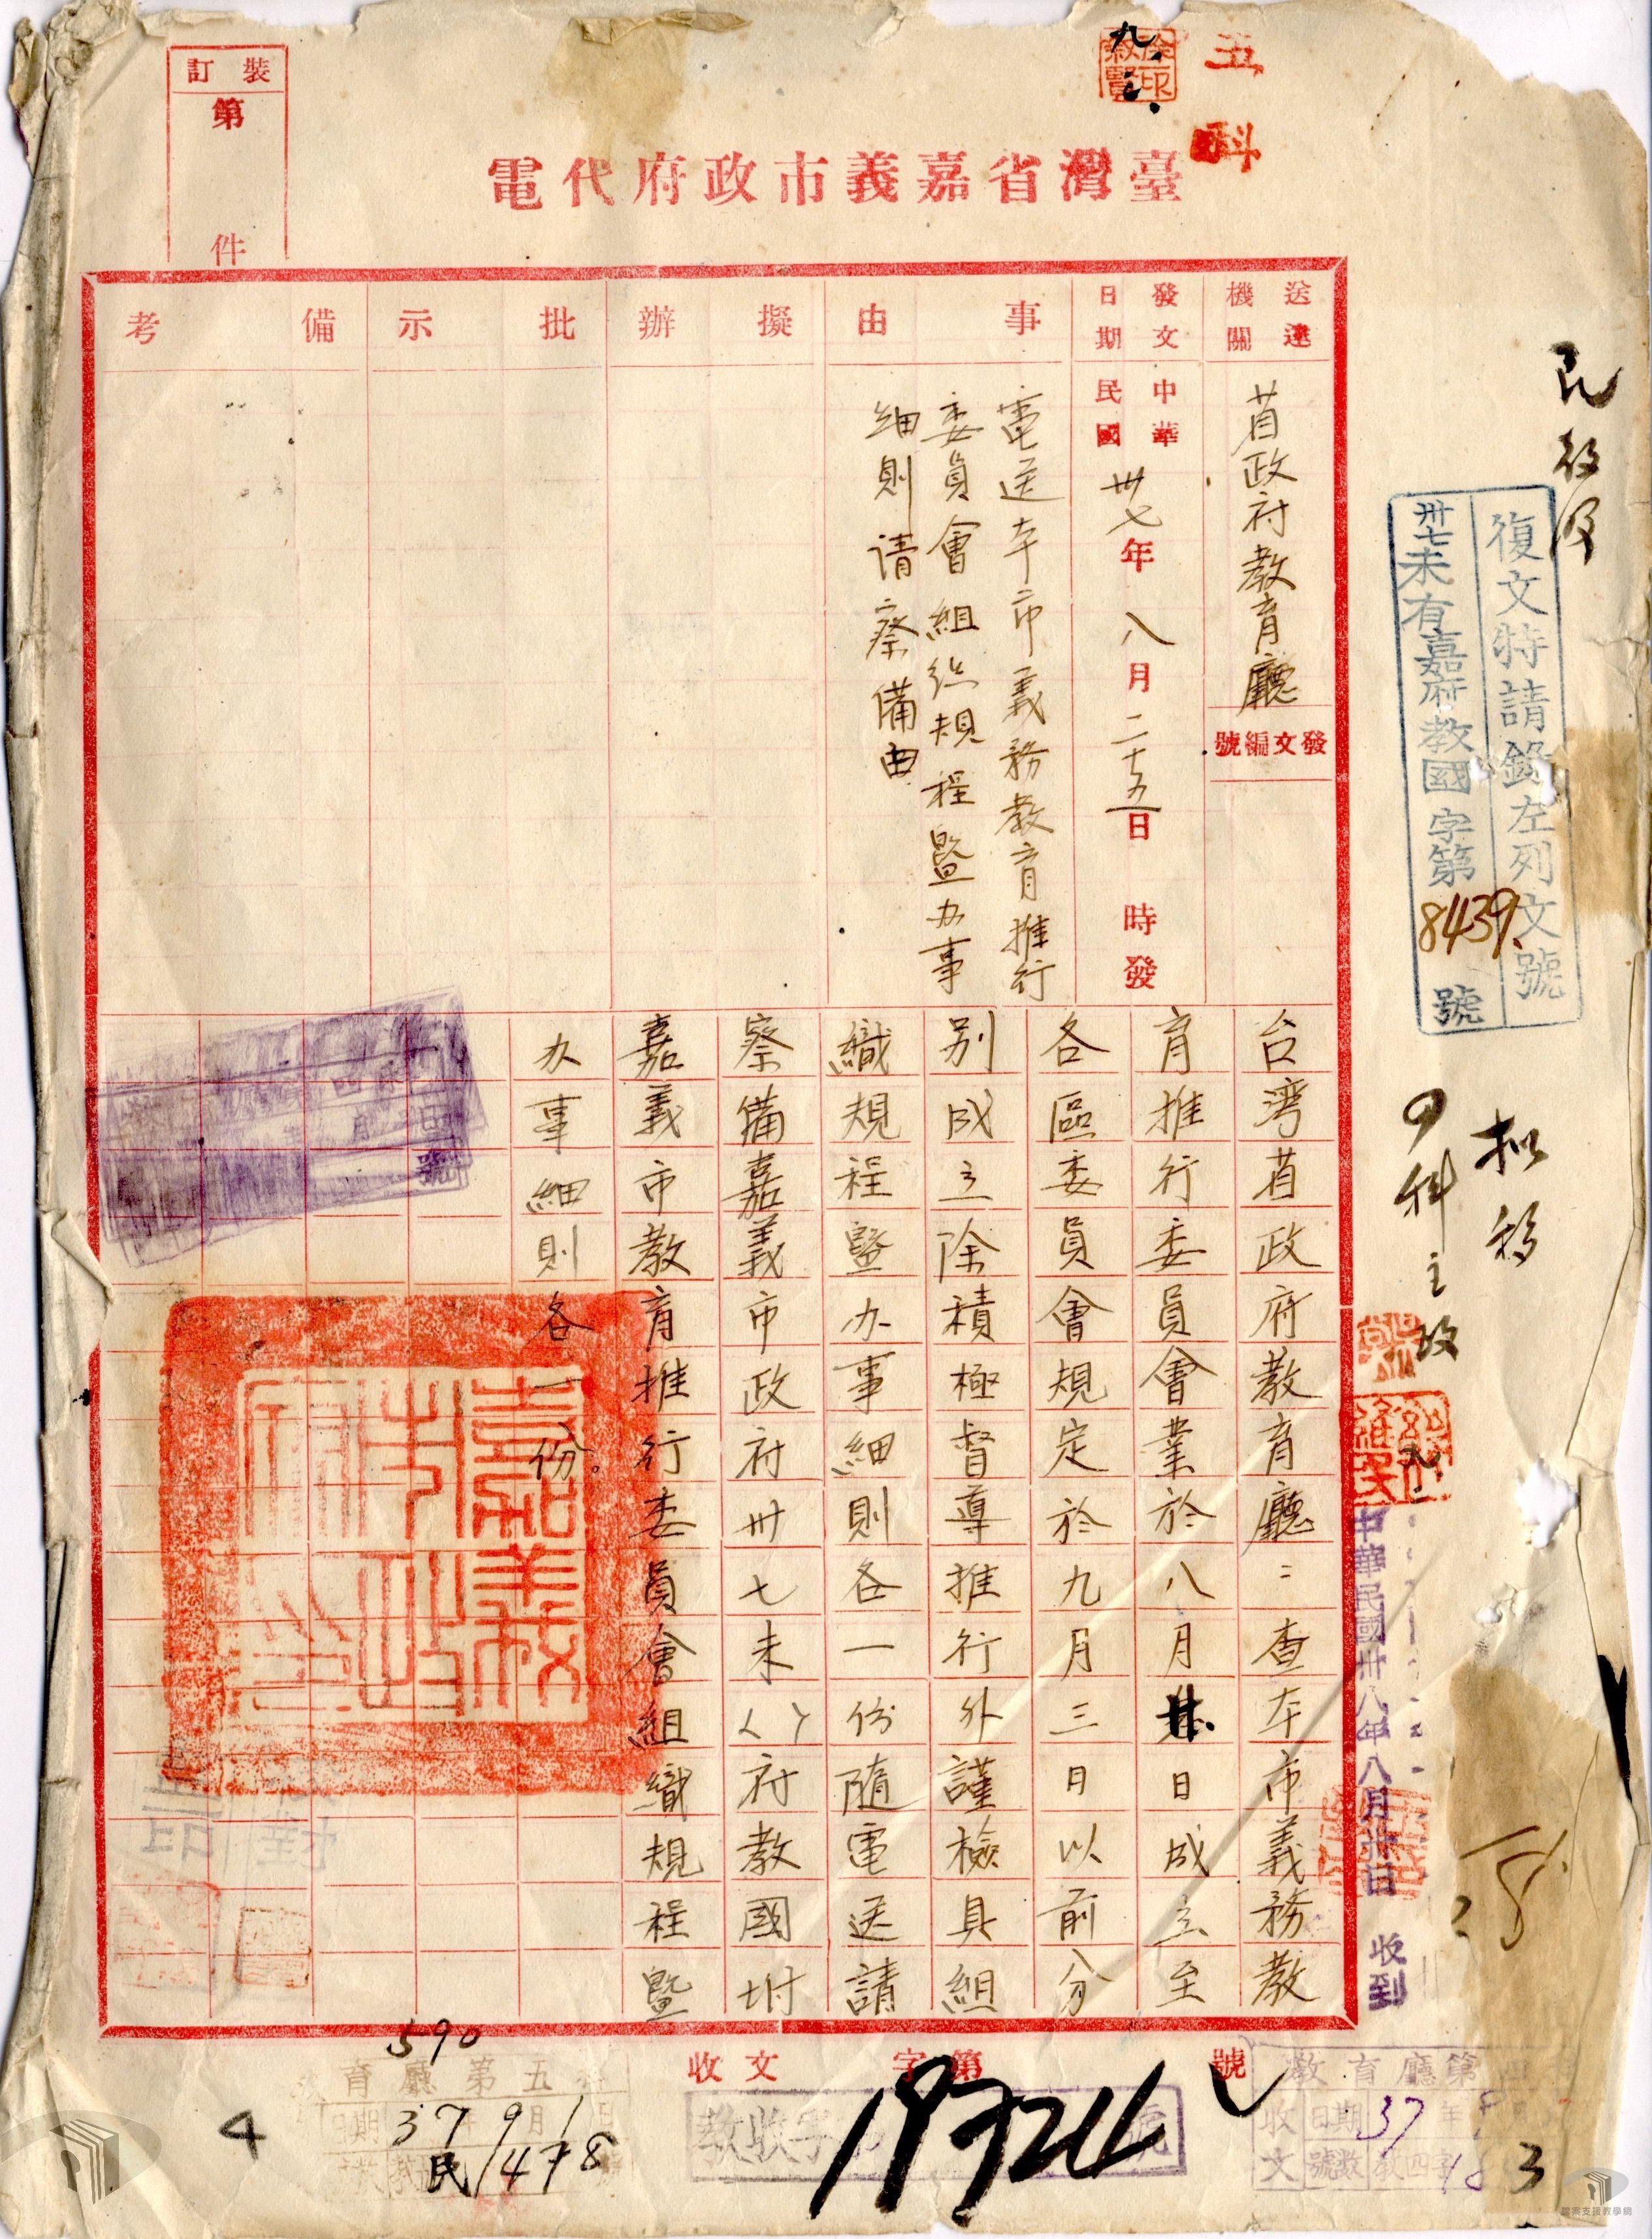 五科
九.
臺灣省嘉義市政府代電
裝訂
第 件
送達機關
省政府教育廳
發文編號
發文日期
中華民國卅七年八月二十五日 時發
事由
電送本市義務教育推行
委員會組织規程暨办事
細則请察備由
擬辦
批示
備考
台湾省政府教育廳:查本市義務教
育推行委員會業於八月廿日成立至
各區委員會規定於九月三日以前分
别成立除積極督導推行外謹檢具組
織規程暨办事細則各一份隨電送請
察備嘉義市政府卅七未()府教國坿
嘉義市教育推行委員會組織規程暨
办事細則各一份。
嘉義市政府印
復文特請錄左列文號
卅七未有嘉府教國字第8439.號
拟移
四科主政
中華民國卅八年八月廿日 收到
收文 字第 號
教收字 號
19724
教育廳第四科
收文 日期 37年
號數 教四字
3
590
育廳第五科
日期 37 9月1日
民1478
4
檔案支援教學網